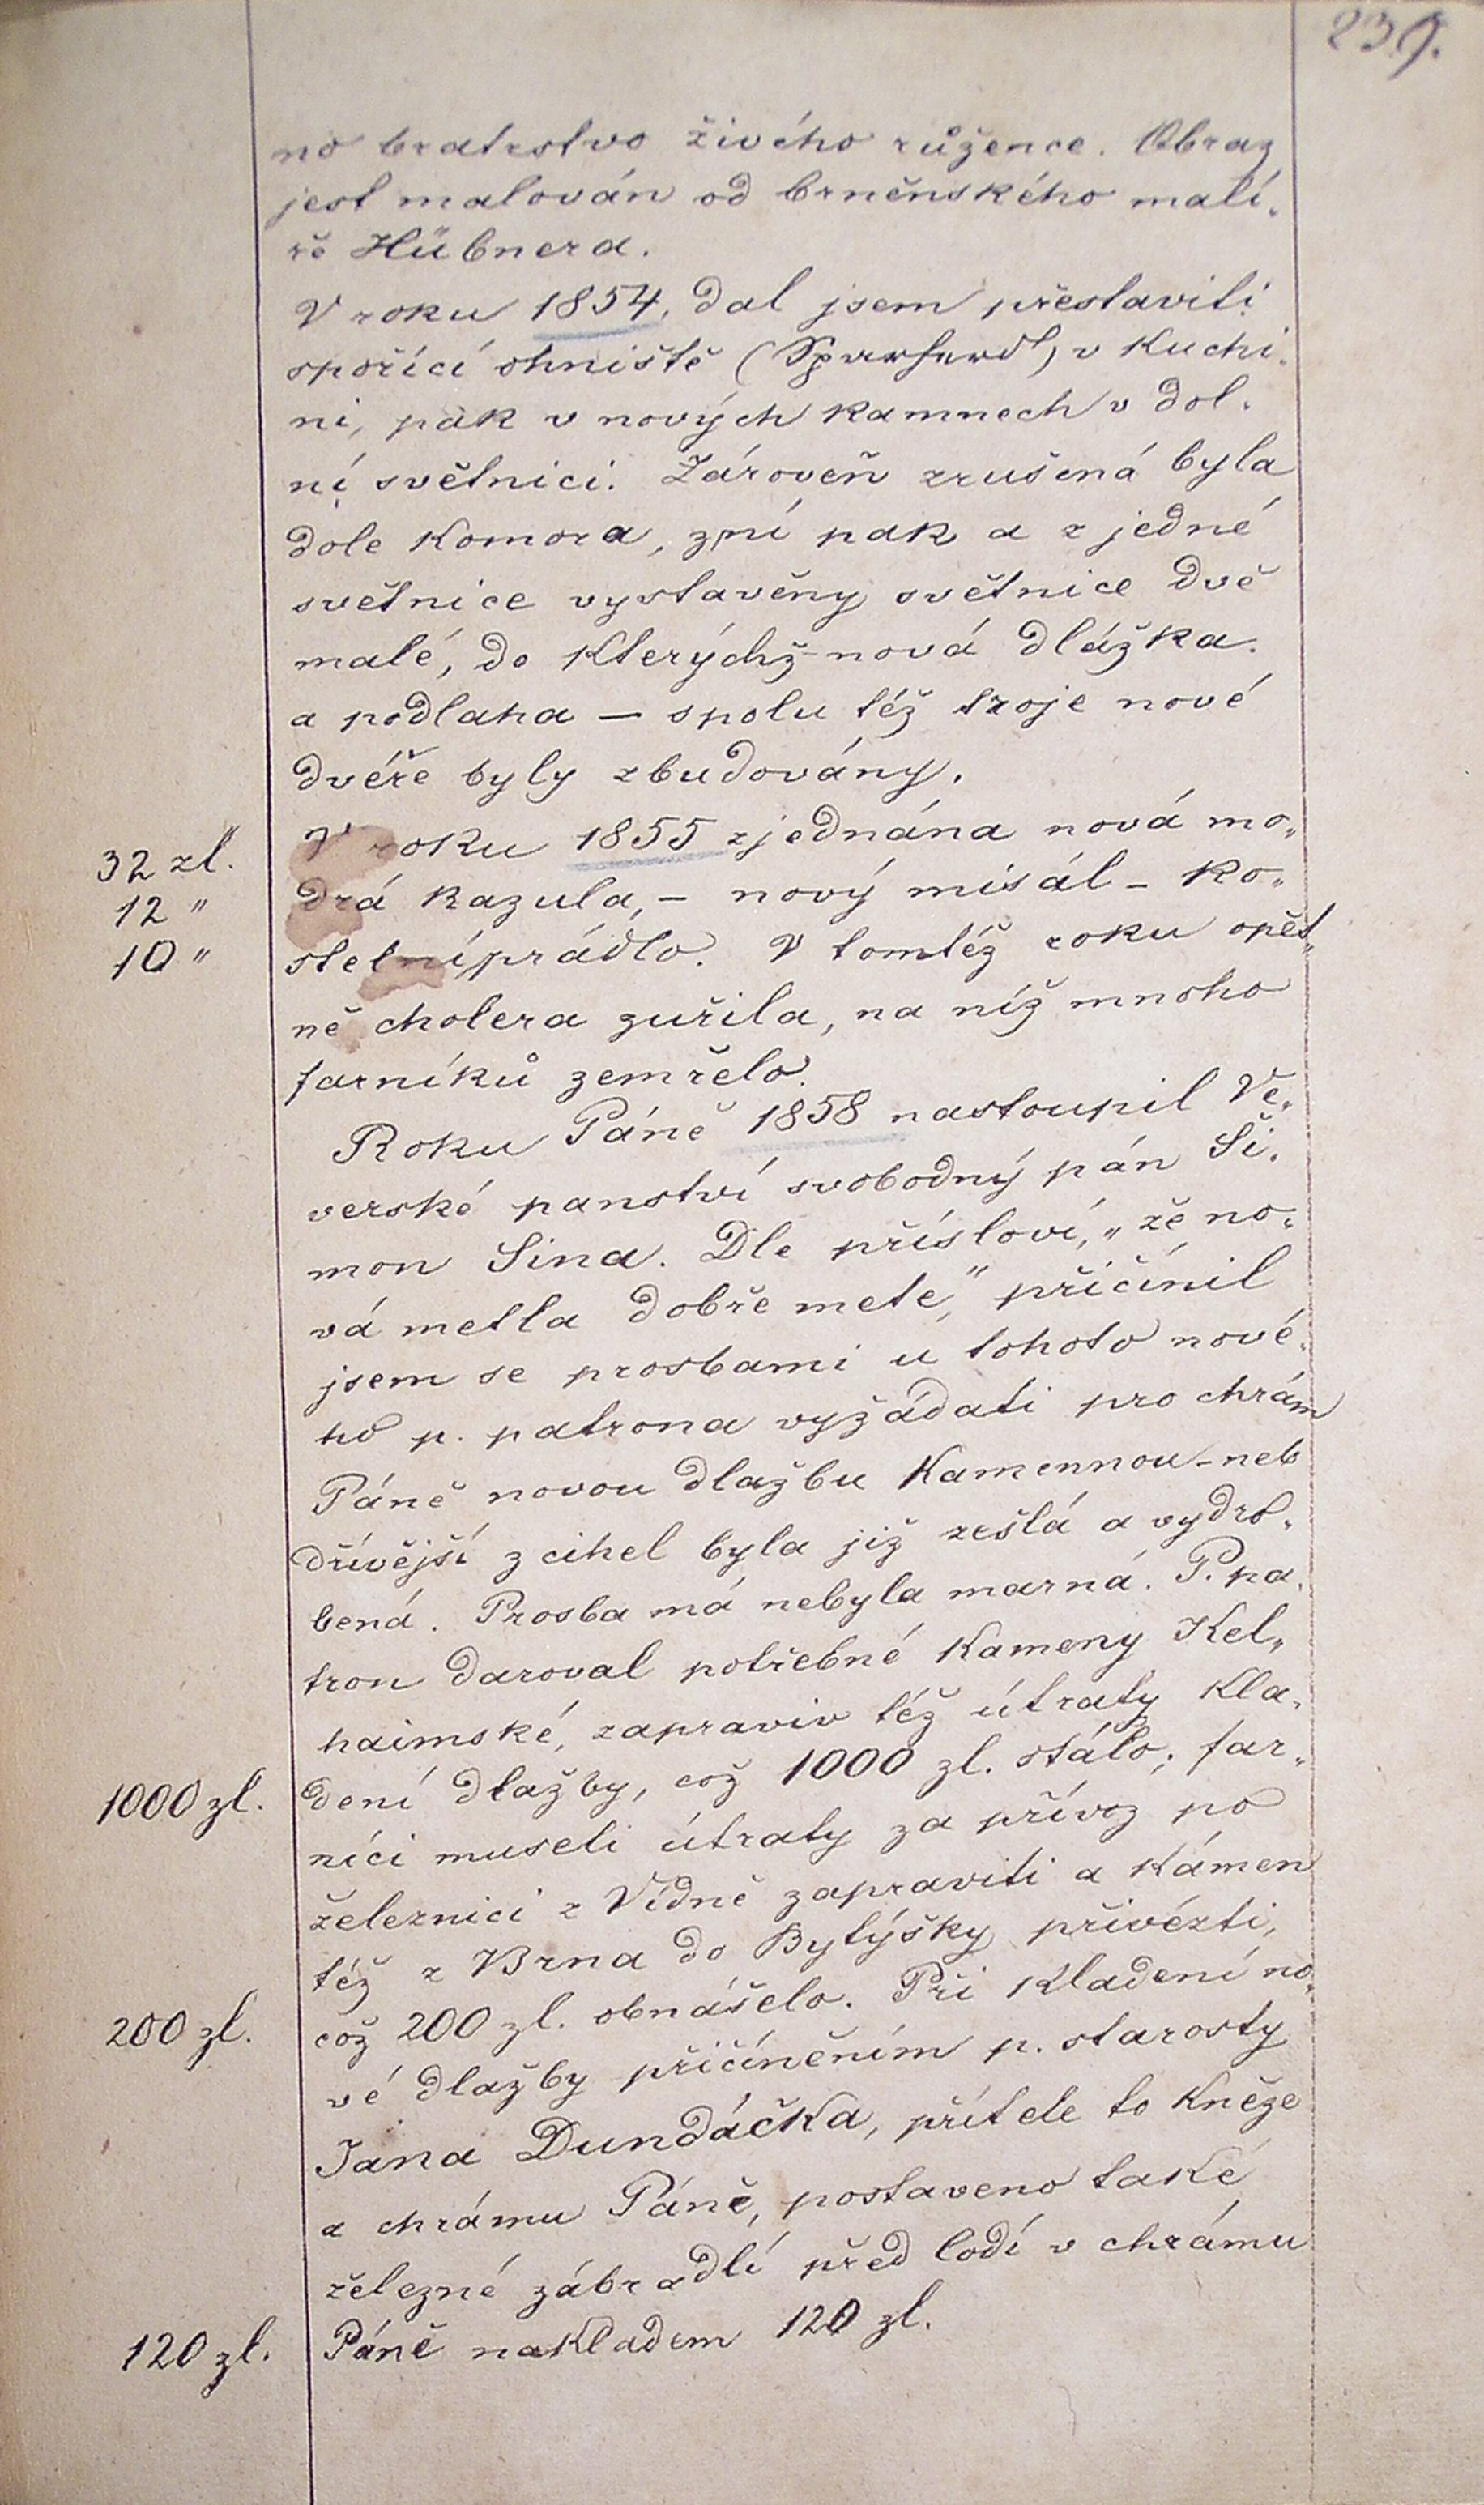 239.
no bratrstvo živého růžence. Obraz
jest malován od brněnského malí-
ře Hübnera.
V roku 1854, dal jsem přestaviti
spořící ohniště (Sparherd) v kuchi-
ni, pak v nových kamnech v dol-
ní světnici. Zároveň zrušená byla
dole komora, z ní pak a z jedné
světnice vystavěny světnice dvě
malé, do kterýchž nová dlážka
a podlaha — spolu též troje nové
dvéře byly zbudovány.
V roku 1855 zjednána nová mo-
32 zl.
drá kazula, — nový misál — ko-
12 "
stelní prádlo. V tomtéž roku opět-
10 "
ně cholera zuřila, na níž mnoho
farníků zemřelo.
Roku Páně 1858 nastoupil Ve-
verské panství svobodný pán Ši-
mon Sina. Dle přísloví, „že no-
vá metla dobře mete," přičinil
jsem se prosbami u tohoto nové-
ho p. patrona vyžádati pro chrám
Páně novou dlažbu kamennou — neb
dřívější z cihel byla již zešlá a vydro-
bená. Prosba má nebyla marná. P. pa-
tron daroval potřebné kameny Kel-
haimské, zapraviv též útraty kla-
dení dlažby, což 1000 zl. stálo; far-
1000 zl.
níci museli útraty za přívoz po
železnici z Vídně zapraviti a kámen
též z Brna do Bytýšky přivézti,
což 200 zl. obnášelo. Při kladení no-
200 zl.
vé dlažby přičiněním p. starosty
Jana Dundáčka, přítele to kněze
a chrámu Páně, postaveno také
železné zábradlí před lodí v chrámu
Páně nákladem 120 zl.
120 zl.